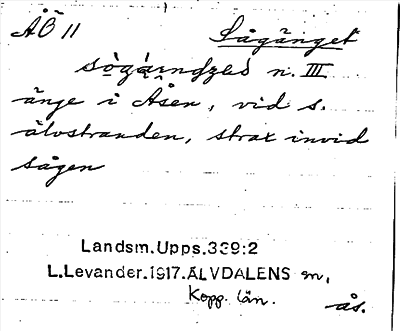 ÅÖ 11 Sågänget
n. III
änge i Åsen, vid s.
älvstranden, strax invid
sågen
Landsm.Upps.339:2
L.Levander.1917.ÄLVDALENS sn,
Kopp. län.
ås.